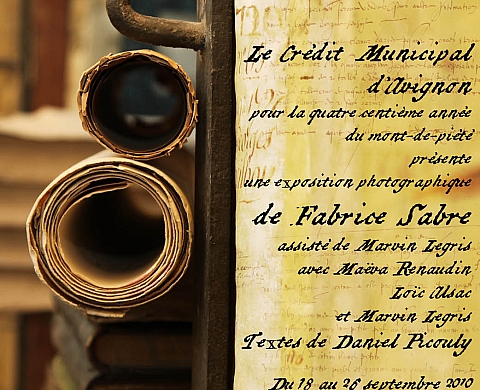 Le Crédit Municipal
d'Avignon
pour la quatre centième année
du mont-de-piété
présente
une exposition photographique
de Fabrice Sabre
assisté de Marvin Legris
avec Maëva Renaudin
Loïc Alsac
et Marvin Legris
Textes de Daniel Picouly
Du 18 au 26 septembre 2010